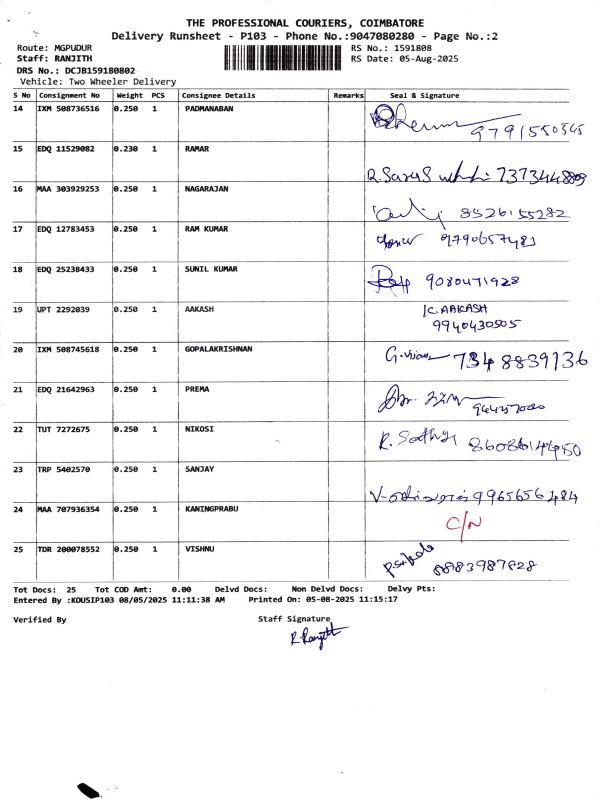 THE PROFESSIONAL COURIERS, COIMBATORE
Delivery Runsheet - P103 - Phone No.:9047080280 - Page No.:2
Route: MGPUDUR RS No.: 1591808
Staff: RANJITH RS Date: 05-Aug-2025
DRS No.: DCJB159180802
Vehicle: Two Wheeler Delivery
S No Consignment No Weight PCS Consignee Details Remarks Seal & Signature
14 IXM 508736516 0.250 1 PADMANABAN 9791550545
15 EDQ 11529082 0.230 1 RAMAR
16 MAA 303929253 0.250 1 NAGARAJAN 8526155282
17 EDQ 12783453 0.250 1 RAM KUMAR 9790657481
18 EDQ 25238433 0.250 1 SUNIL KUMAR 9080471928
19 UPT 2292039 0.250 1 AAKASH K. AAKASH
9940430505
20 IXM 508745618 0.250 1 GOPALAKRISHNAN 7348839136
21 EDQ 21642963 0.250 1 PREMA
22 TUT 7272675 0.250 1 NIKOSI R. Sathya
23 TRP 5402570 0.250 1 SANJAY 9965656484
24 MAA 707936354 0.250 1 KANINGPRABU C/N
25 TDR 200078552 0.250 1 VISHNU 8883987828
Tot Docs: 25 Tot COD Amt: 0.00 Delvd Docs: Non Delvd Docs: Delvy Pts:
Entered By :KOUSIP103 08/05/2025 11:11:38 AM Printed On: 05-08-2025 11:15:17
Verified By Staff Signature
R. Ranjith